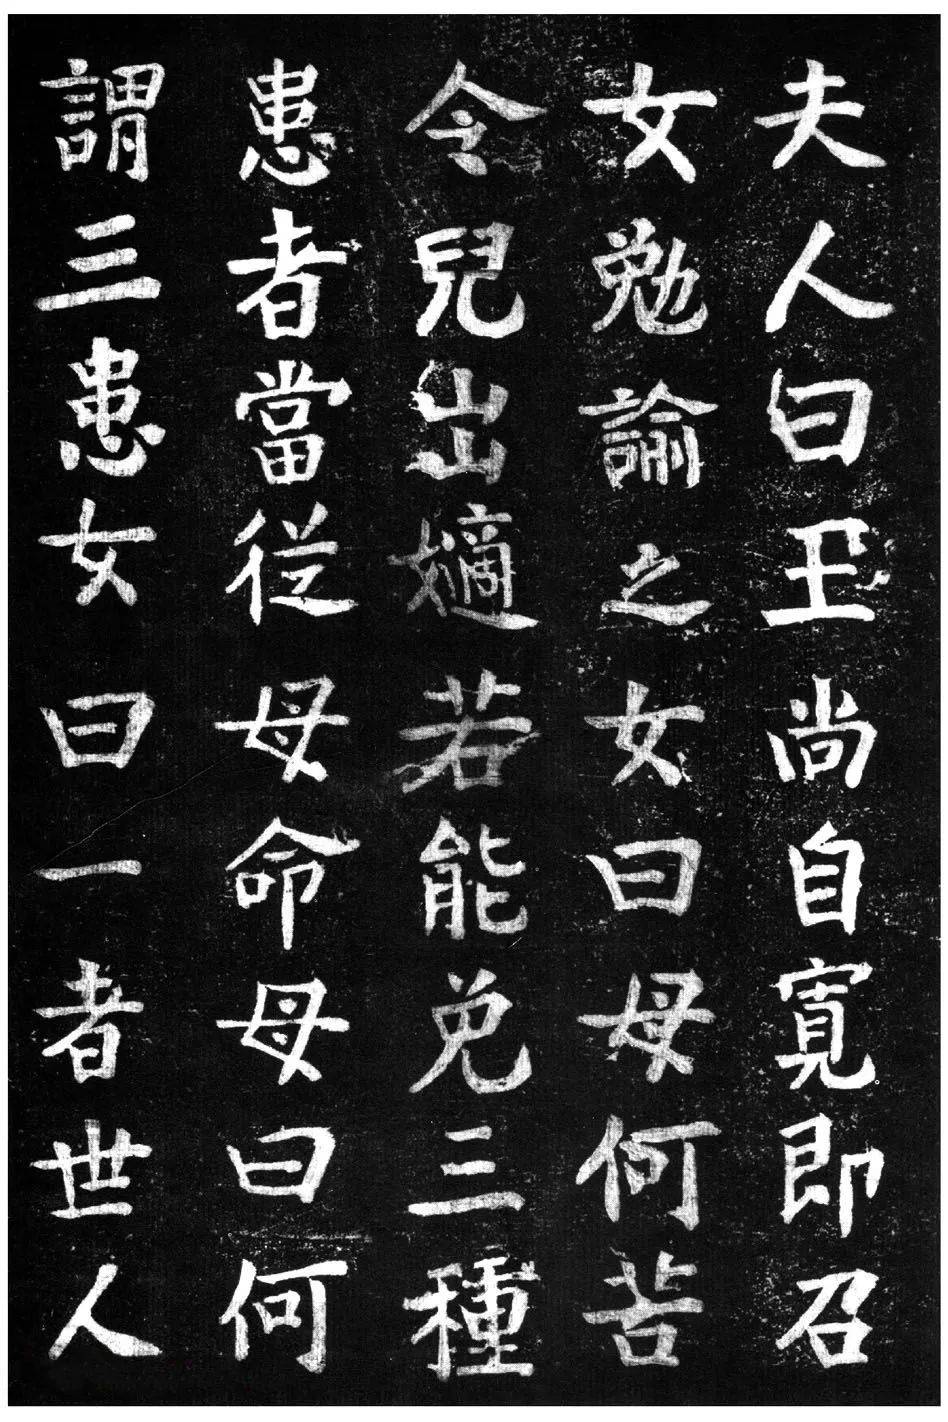 夫人曰王尚自寛即召
女勉諭之女曰母何苦
令兒出嫡若能免三種
患者當從母命母曰何
謂三患女曰一者世人